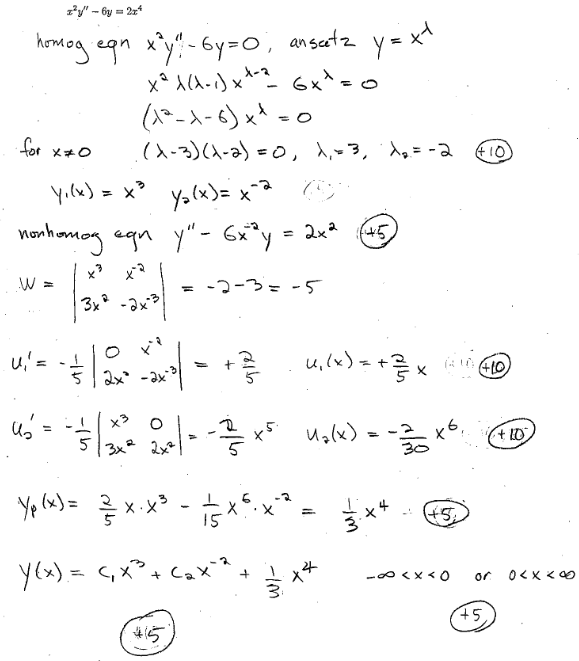 x²y″ − 6y = 2x⁴
homog eqn x²y″ − 6y = 0, ansatz y = x^λ
x² λ(λ-1) x^(λ-2) − 6x^λ = 0
(λ² − λ − 6) x^λ = 0
for x≠0 (λ-3)(λ-2) = 0, λ₁ = 3, λ₂ = −2 +10
y₁(x) = x³ y₂(x) = x⁻²
nonhomog eqn y″ − 6x⁻²y = 2x² +5
W = | x³ x⁻² ; 3x² −2x⁻³ | = −2−3 = −5
u₁′ = −1/5 | 0 x⁻² ; 2x² −2x⁻³ | = +2/5 u₁(x) = +2/5 x +10
u₂′ = −1/5 | x³ 0 ; 3x² 2x² | = −2/5 x⁵ u₂(x) = −2/30 x⁶ +10
yₚ(x) = 2/5 x·x³ − 1/15 x⁶·x⁻² = 1/3 x⁴ +5
y(x) = c₁x³ + c₂x⁻² + 1/3 x⁴ −∞<x<0 or 0<x<∞
+5 +5